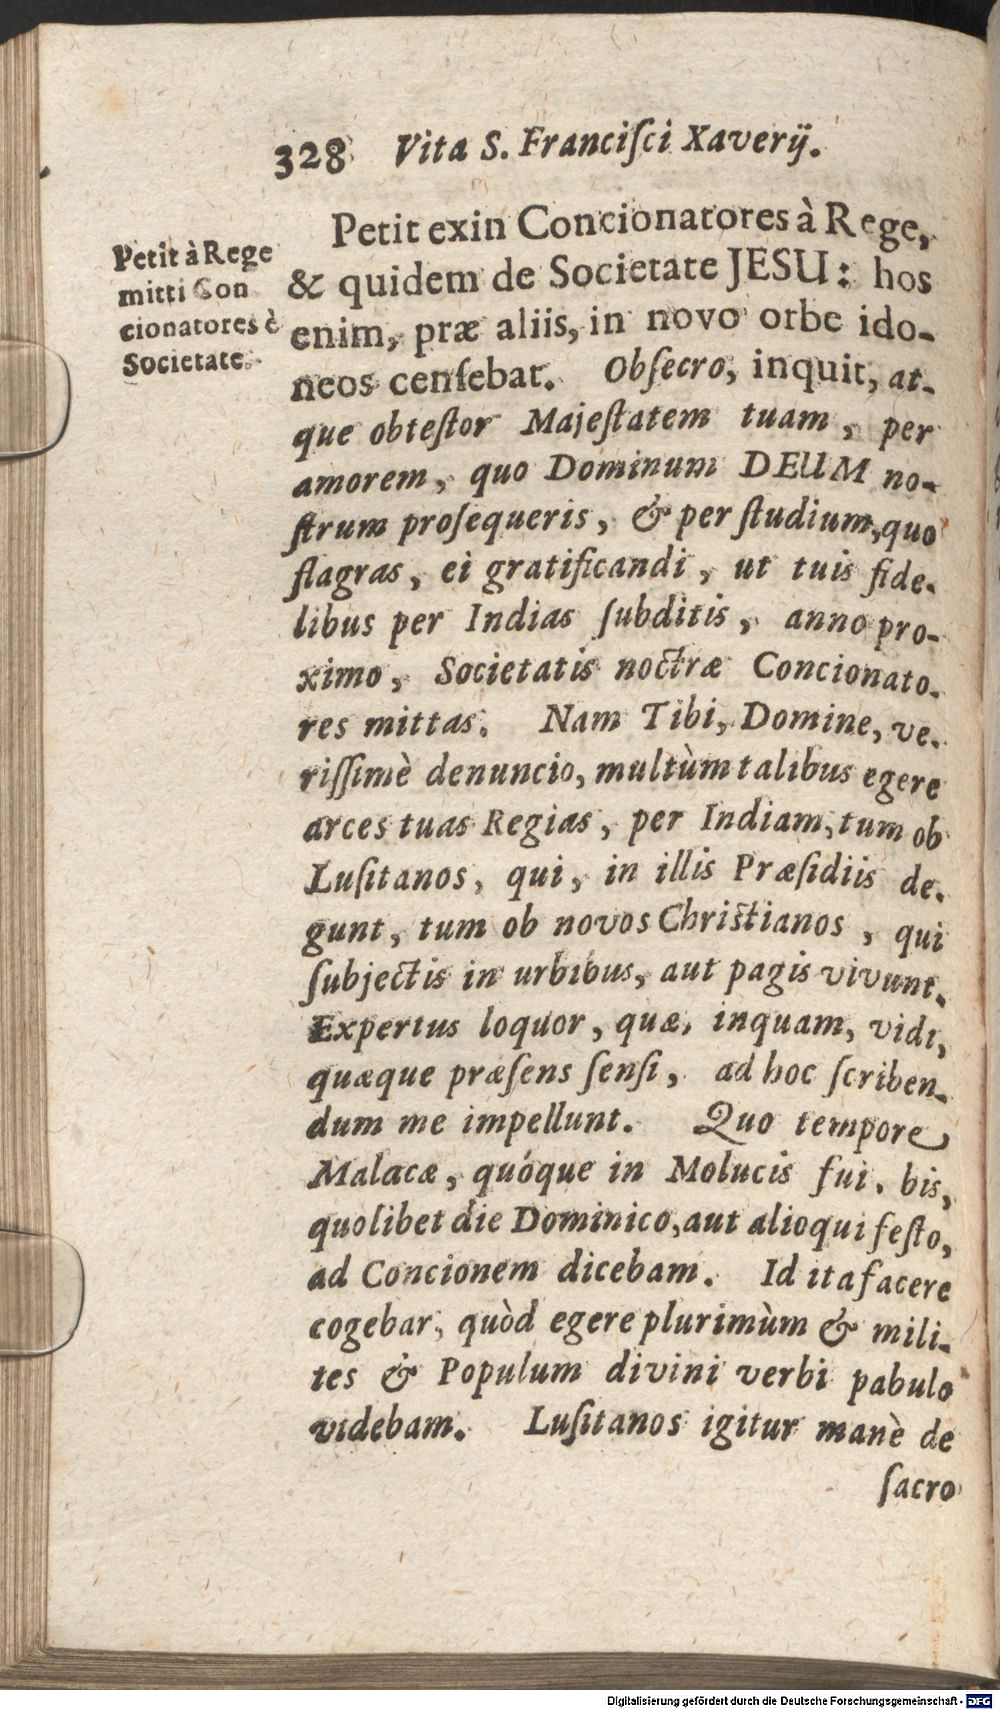 328 Vita S. Franciſci Xaverij.
Petit à Rege
mitti Con
cionatores è
Societate.
Petit exin Concionatores à Rege,
& quidem de Societate JESU: hos
enim, præ aliis, in novo orbe ido-
neos cenſebat. Obſecro, inquit, at-
que obteſtor Majeſtatem tuam, per
amorem, quo Dominum DEUM no-
ſtrum proſequeris, & per ſtudium, quo
flagras, ei gratificandi, ut tuis fide-
libus per Indias ſubditis, anno pro-
ximo, Societatis noctræ Concionato-
res mittas. Nam Tibi, Domine, ve-
riſſimè denuncio, multùm talibus egere
arces tuas Regias, per Indiam, tum ob
Luſitanos, qui, in illis Præſidiis de-
gunt, tum ob novos Chriſtianos, qui
ſubjectis in urbibus, aut pagis vivunt.
Expertus loquor, quæ, inquam, vidi,
quæque præſens ſenſi, ad hoc ſcriben-
dum me impellunt. Quo tempore
Malacæ, quóque in Molucis fui, bis,
quolibet die Dominico, aut alioqui feſto,
ad Concionem dicebam. Id ita facere
cogebar, quòd egere plurimùm & mili-
tes & Populum divini verbi pabulo
videbam. Luſitanos igitur manè de
ſacro
Digitalisierung gefördert durch die Deutsche Forschungsgemeinschaft - DFG